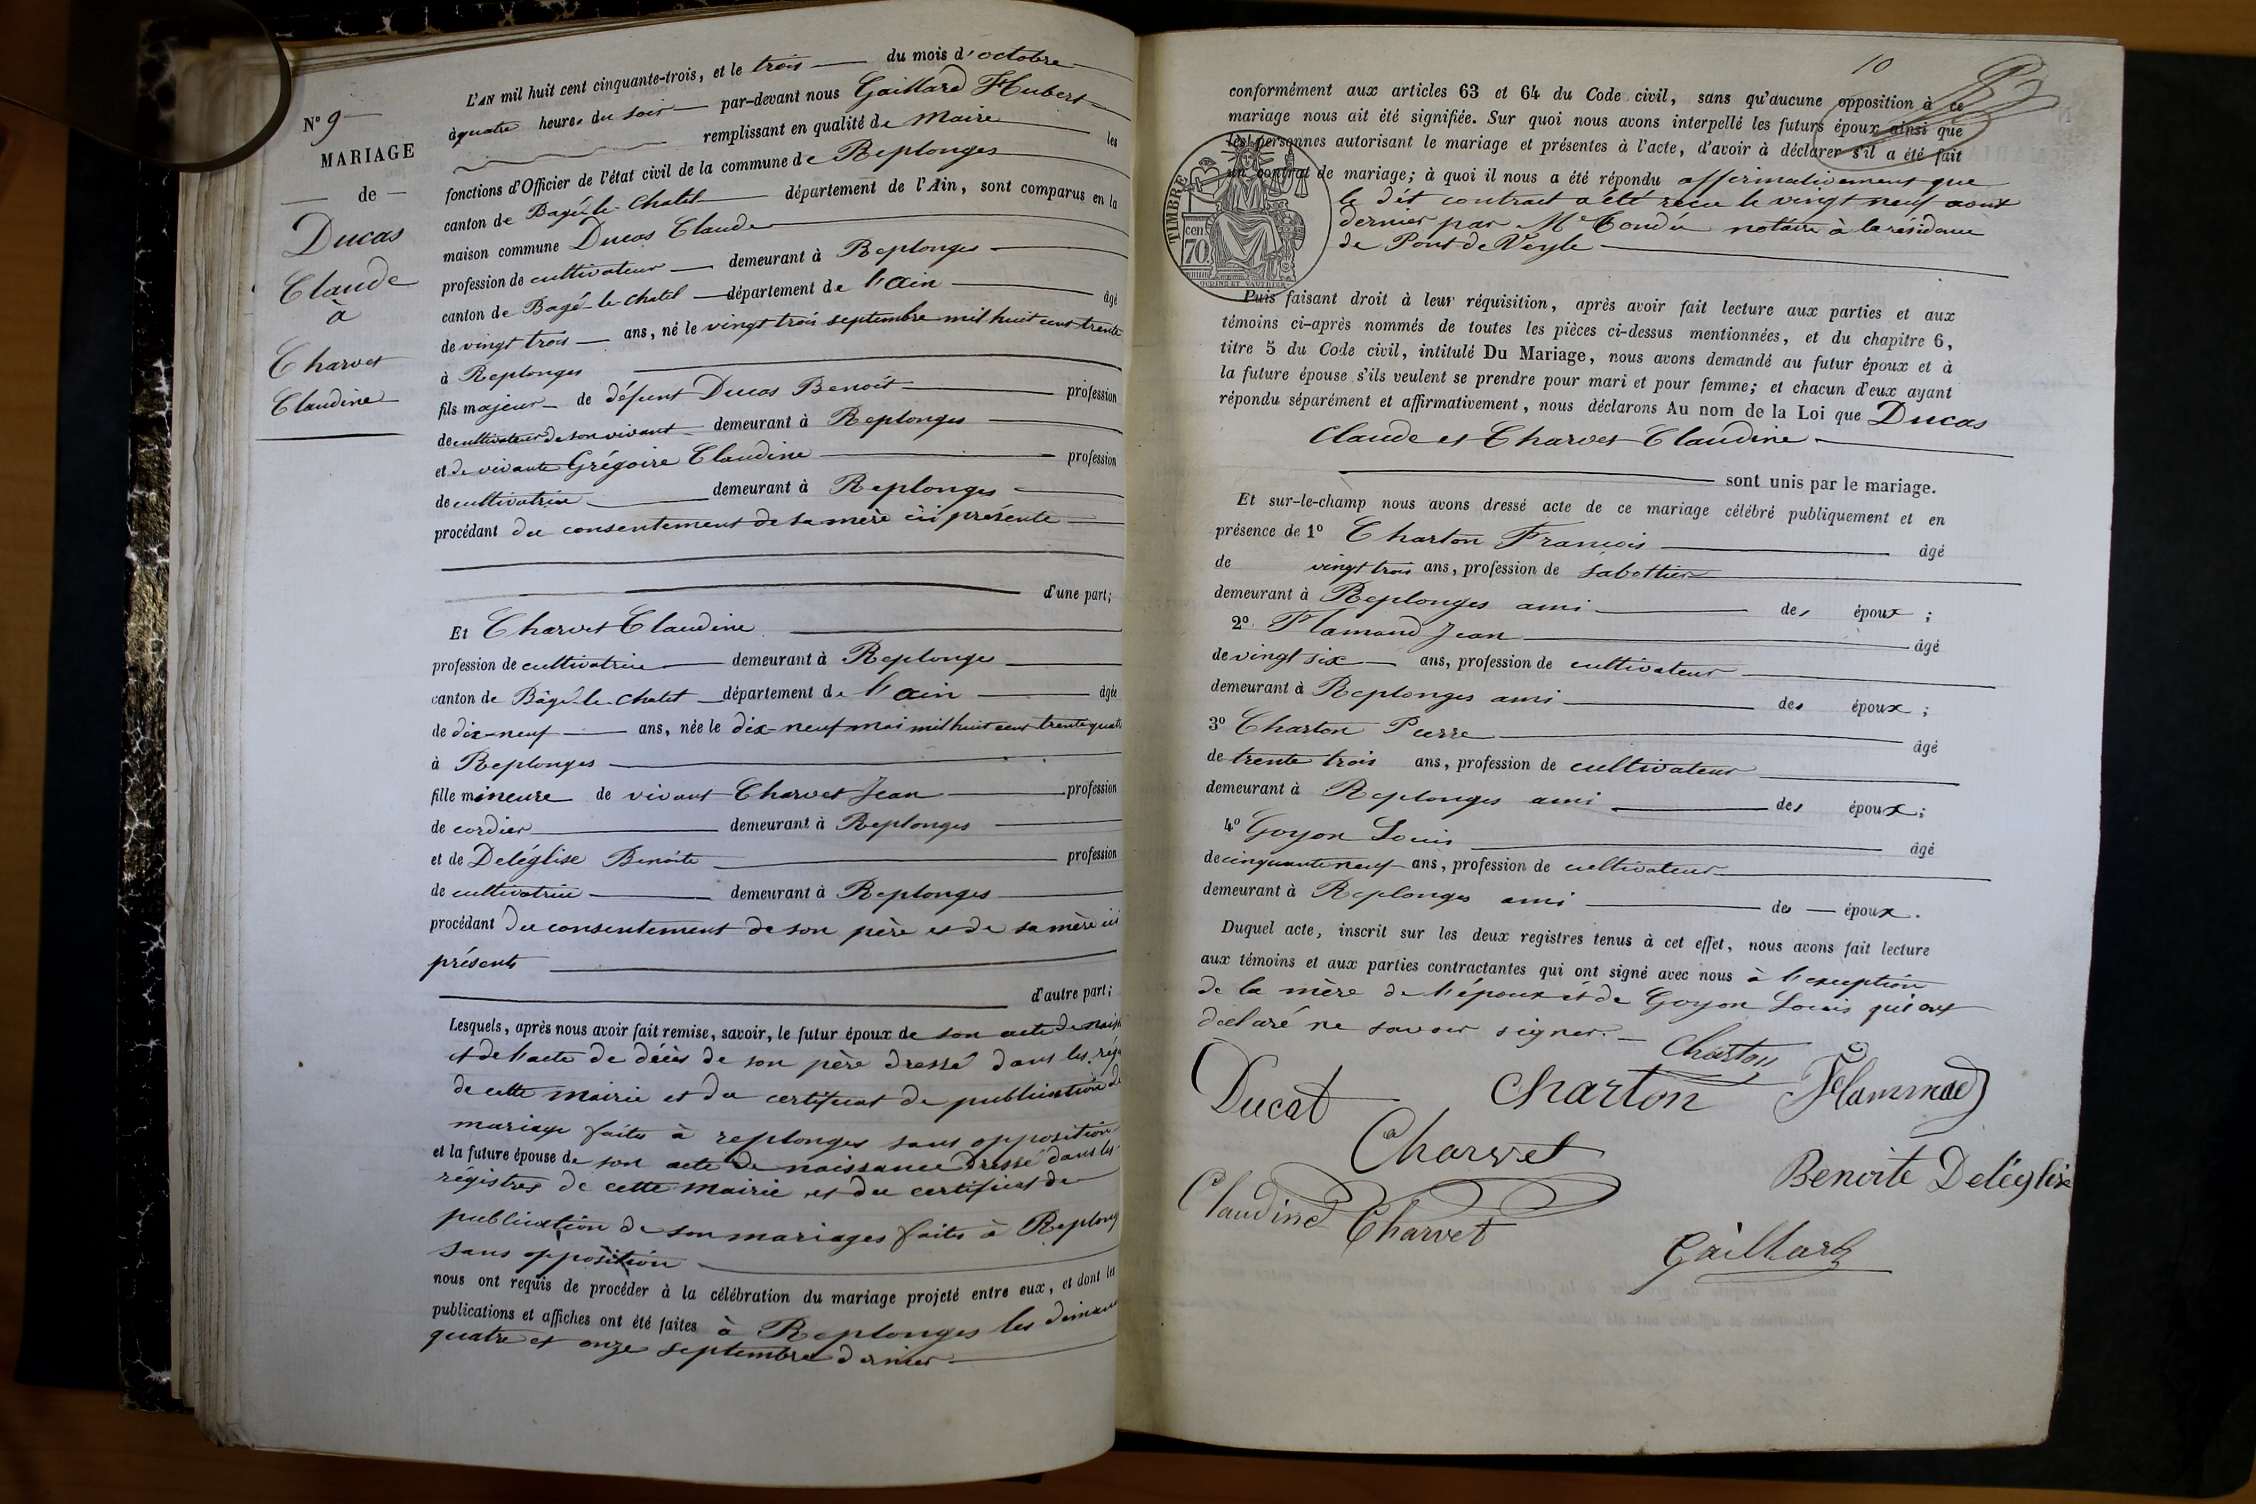 N° 9
MARIAGE
de
Ducas
Claude
à
Charvet
Claudine
L'AN mil huit cent cinquante-trois, et le trois du mois d'octobre
à quatre heures du soir par-devant nous Gaillard Hubert
remplissant en qualité de Maire les
fonctions d'Officier de l'état civil de la commune de Replonges
canton de Bagé-le-Chatel département de l'Ain, sont comparus en la
maison commune Ducas Claude
profession de cultivateur demeurant à Replonges
canton de Bagé-le-Chatel département de l'ain âgé
de vingt trois ans, né le vingt trois septembre mil huit cent trente
à Replonges
fils majeur de défunt Ducas Benoit profession
de cultivateur de son vivant demeurant à Replonges
et de vivante Grégoire Claudine profession
de cultivatrice demeurant à Replonges
procédant du consentement de sa mère ici présente
d'une part;
Et Charvet Claudine
profession de cultivatrice demeurant à Replonges
canton de Bâgé-le-Chatel département de l'ain âgée
de dix-neuf ans, née le dix-neuf mai mil huit cent trente quat
à Replonges
fille mineure de vivant Charvet Jean profession
de cordier demeurant à Replonges
et de Deléglise Benoite profession
de cultivatrice demeurant à Replonges
procédant du consentement de son père et de sa mère ici
présents
d'autre part;
Lesquels, après nous avoir fait remise, savoir, le futur époux de son acte de naiss
et de l'acte de décès de son père dressé dans les régi
de cette mairie et du certificat de publication de
mariage faites à replonges sans opposition
et la future épouse de son acte de naissance dressé dans les
régistres de cette Mairie et du certificat de
publication de son mariages faites à Replong
sans opposition
nous ont requis de procéder à la célébration du mariage projeté entre eux, et dont les
publications et affiches ont été faites à Replonges les diman
quatre et onze septembre dernier
10
conformément aux articles 63 et 64 du Code civil, sans qu'aucune opposition à ce
mariage nous ait été signifiée. Sur quoi nous avons interpellé les futurs époux ainsi que
les personnes autorisant le mariage et présentes à l'acte, d'avoir à déclarer s'il a été fait
un contrat de mariage; à quoi il nous a été répondu affirmativement que
le dit contract a été reçu le vingt neuf aout
dernier par Me Condé notaire à la résidence
de Pont de Veyle
TIMBRE
cent
70.
Puis faisant droit à leur réquisition, après avoir fait lecture aux parties et aux
témoins ci-après nommés de toutes les pièces ci-dessus mentionnées, et du chapitre 6,
titre 5 du Code civil, intitulé Du Mariage, nous avons demandé au futur époux et à
la future épouse s'ils veulent se prendre pour mari et pour femme; et chacun d'eux ayant
répondu séparément et affirmativement, nous déclarons Au nom de la Loi que Ducas
Claude et Charvet Claudine
sont unis par le mariage.
Et sur-le-champ nous avons dressé acte de ce mariage célébré publiquement et en
présence de 1° Charton François âgé
de vingt trois ans, profession de sabottier
demeurant à Replonges ami des époux ;
2° Flamand Jean âgé
de vingt six ans, profession de cultivateur
demeurant à Replonges ami des époux ;
3° Charton Pierre âgé
de trente trois ans, profession de cultivateur
demeurant à Replonges ami des époux ;
4° Goyon Louis âgé
de cinquante neuf ans, profession de cultivateur
demeurant à Replonges ami des époux.
Duquel acte, inscrit sur les deux registres tenus à cet effet, nous avons fait lecture
aux témoins et aux parties contractantes qui ont signé avec nous à l'exception
de la mère de l'époux et de Goyon Louis qui ont
déclaré ne savoir signer.
Charton
Ducat Charton Flammad
Charvet
Benoite Deléglise
Claudine Charvet
Gaillard